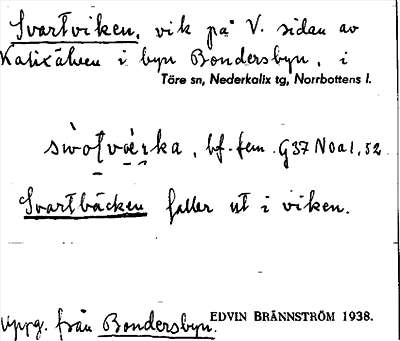 Svartviken, vik på V. sidan av
Kalixälven i byn Bondersbyn, i
Töre sn, Nederkalix tg, Norrbottens l.
bf. fem. G37 Noa1,52
Svartbäcken faller ut i viken.
Uppg. från Bondersbyn.
EDVIN BRÄNNSTRÖM 1938.